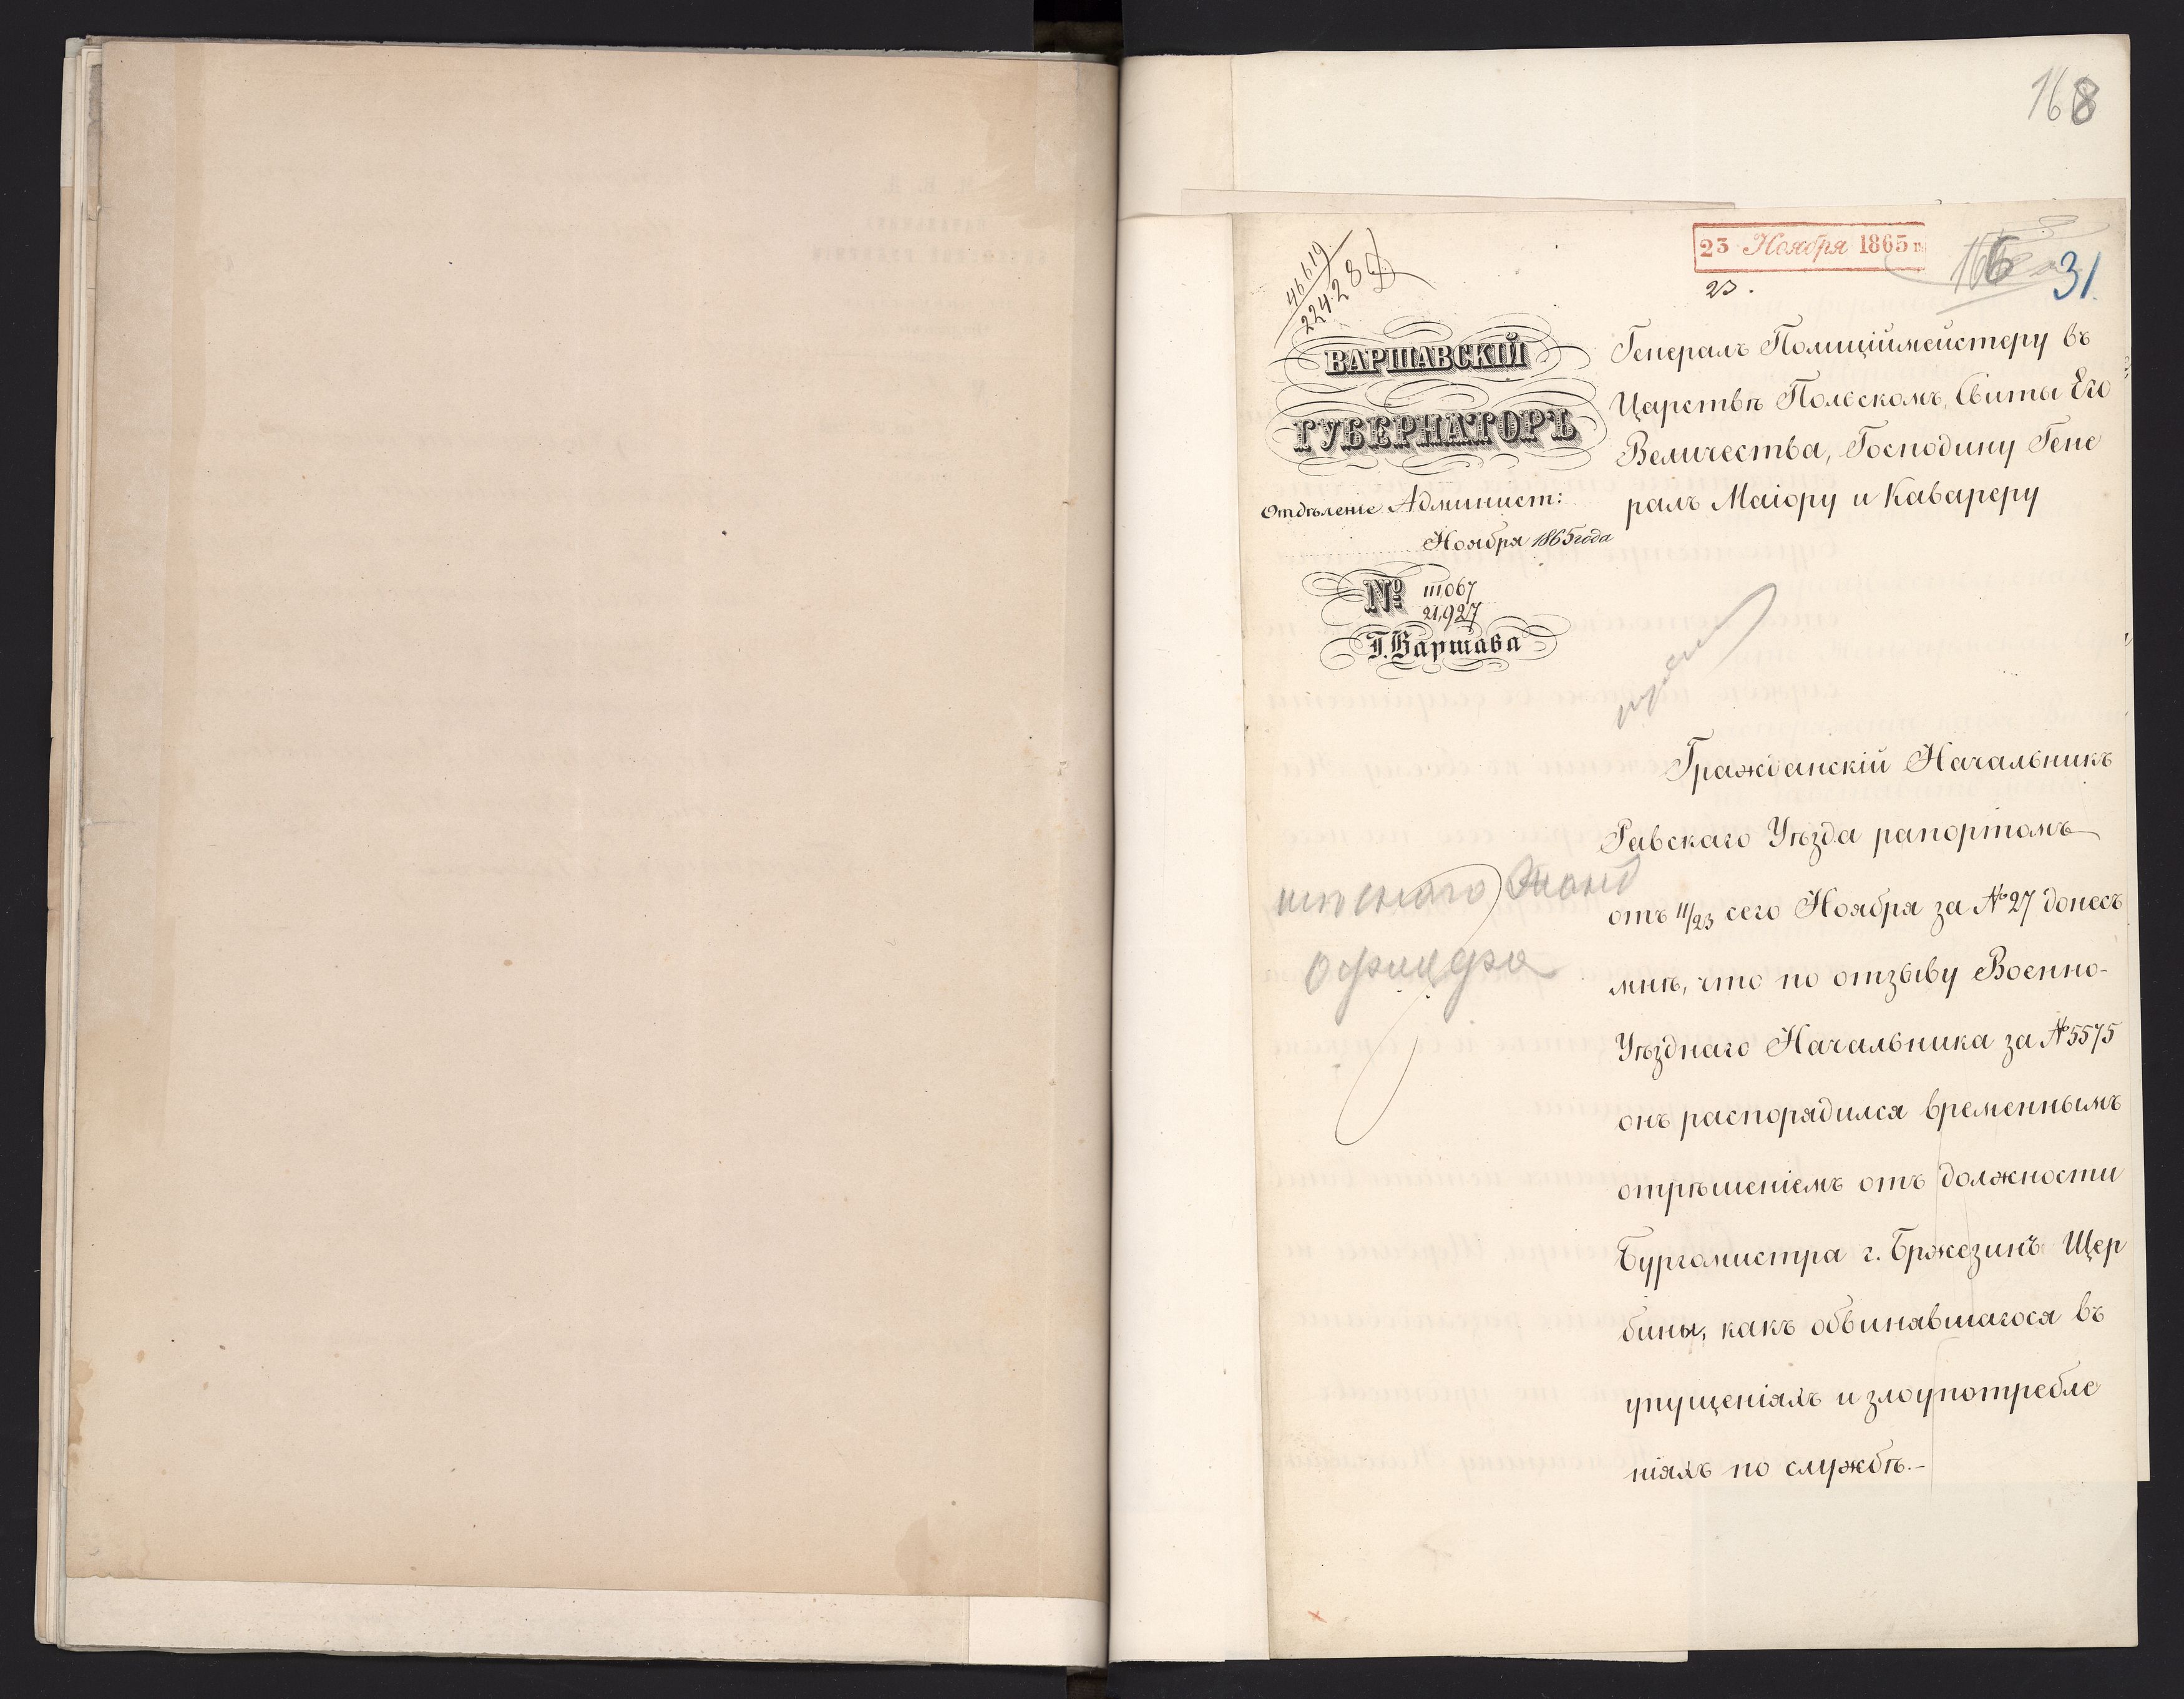 168
23 Ноября 1865 г.
23.
31.
46619
22428
ВАРШАВСКІЙ
ГУБЕРНАТОРЪ
Отдѣленіе Админист:
Ноября 1865 года
№ 111,067
21,927
Г. Варшава
Генералъ Полиційместеру въ
Царствѣ Польскомъ, Свиты Его
Величества, Господину Гене
ралъ Маіору и Кавалеру
Гражданскій Начальникъ
Равскаго Уѣзда рапортомъ
отъ 11/23 сего Ноября за №27 донесъ
мнѣ, что по отзыву Военно-
Уѣзднаго Начальника за №5575
онъ распорядился временнымъ
отрѣшеніемъ отъ должности
Бургомистра г. Бржезинъ Щер
бины, какъ обвинявшагося въ
упущеніяхъ и злоупотребле
ніяхъ по службѣ.-
офицера